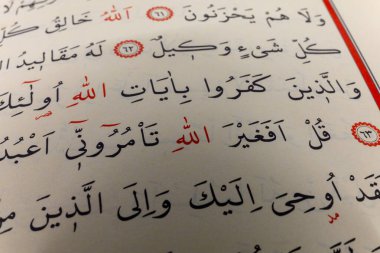 وَلَا هُمْ يَحْزَنُونَ ٦١ اَللّٰهُ خَالِقُ كُلِّ
كُلِّ شَيْءٍ وَكِيلٌ ٦٢ لَهُ مَقَالِيدُ
وَالَّذِينَ كَفَرُوا بِاٰيَاتِ اللّٰهِ اُولٰٓئِكَ
٦٣ قُلْ اَفَغَيْرَ اللّٰهِ تَأْمُرُٓونِّٓي اَعْبُدُ
قَدْ اُوحِيَ اِلَيْكَ وَاِلَى الَّذِينَ مِنْ